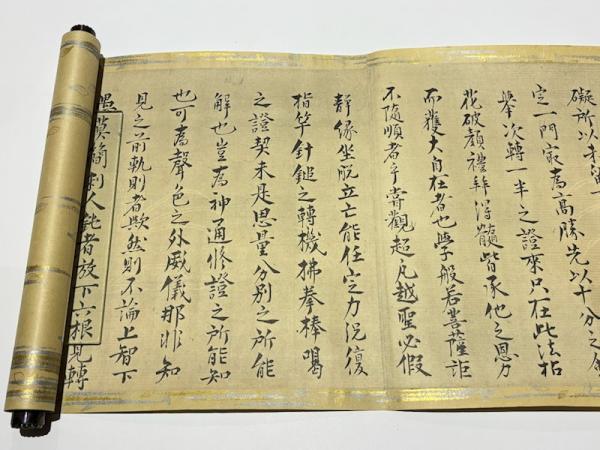 礙所以未
定一門最為高勝先以十分之會
舉次轉一半之證來只在此法拈
花破顏禮拜得髓皆承他之恩力
而獲大自在者也學般若菩薩詎
不隨順者乎嘗觀超凡越聖必假
靜緣坐脫立亡能任定力況復
指竿針鎚之轉機拂拳棒喝
之證契未是思量分別之所能
解也豈為神通修證之所能知
也可為聲色之外威儀那非知
見之前軌則者歟然則不論上智下
愚莫簡利人鈍者放下六根見轉